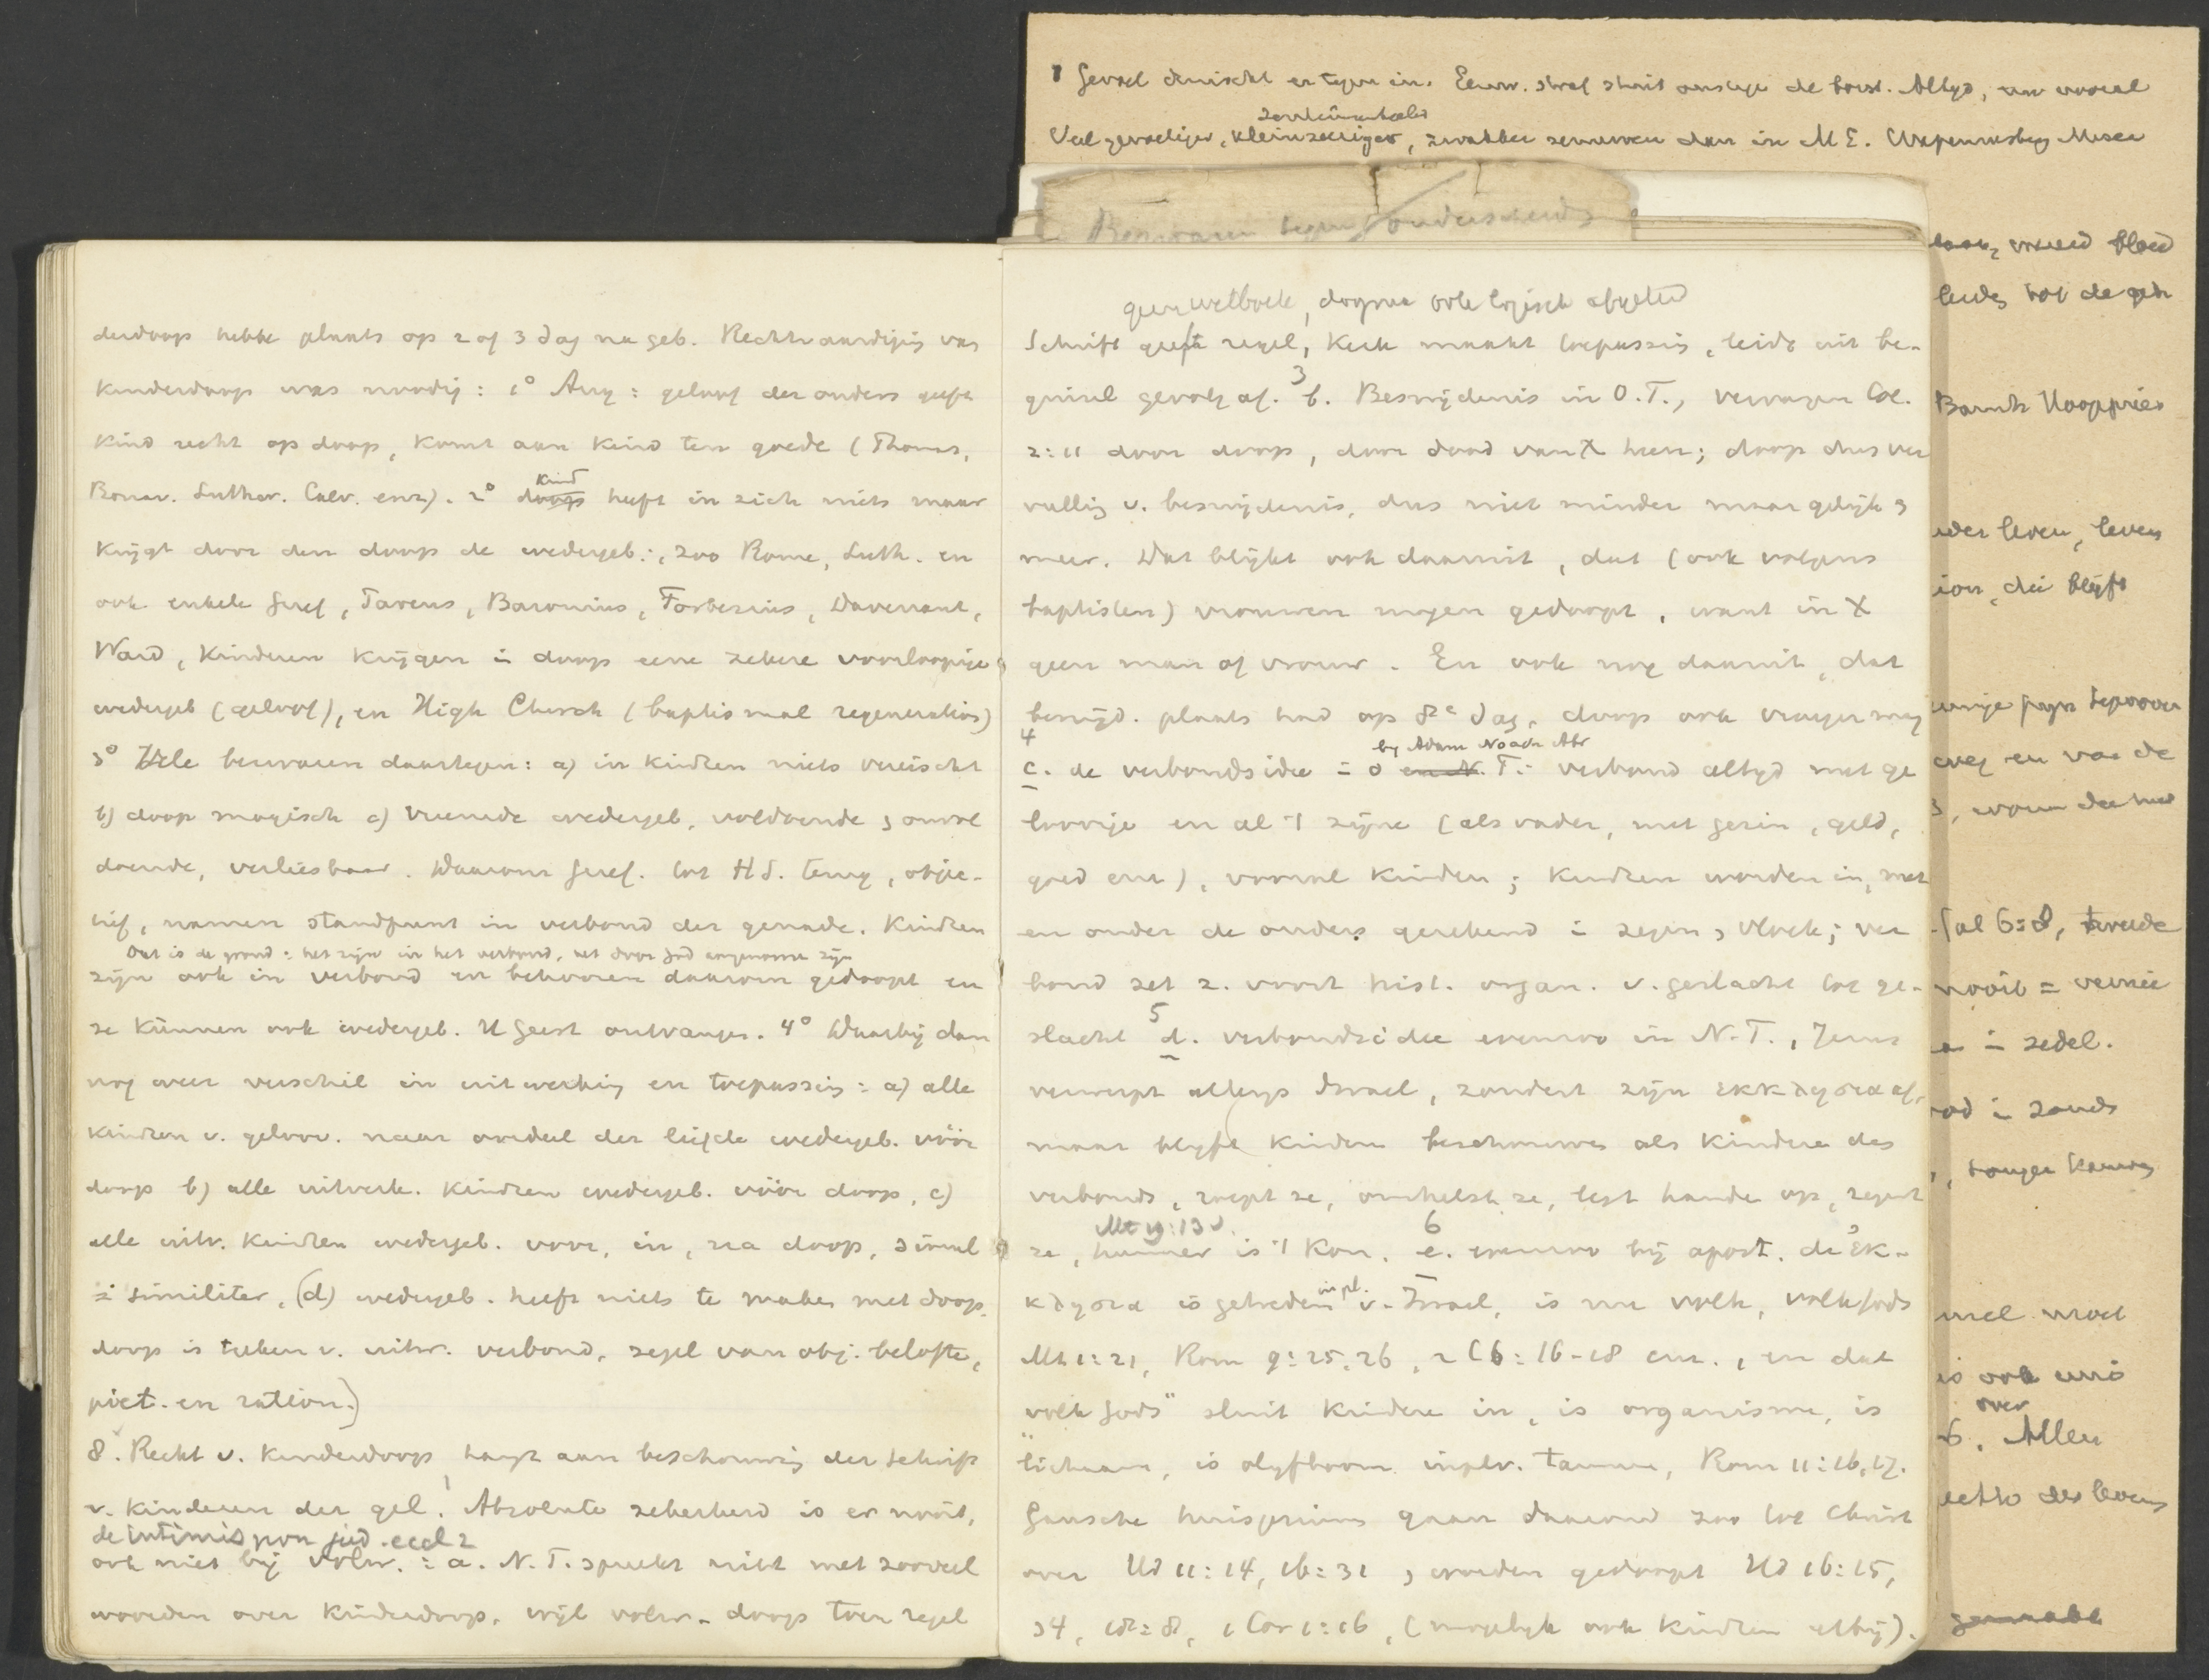 Gevoel druischt er tegen in. Eeuw. straf stuit ons tegen de borst. Altyd, vooral
sentimenteeler
Veel gevoeliger, kleinzeeriger, zwakker zenuwen dan in M E.
Bezwaren tegen onderscheid
derdoop hebbe plaats op 2 of 3 dag na geb. Rechtvaardiging van
kinderdoop was noodig: 1° Aug: geloof der ouders geeft
kind recht op doop, komt aan kind ten goede (Thomas,
Bonav. Luther. Calv. enz). 2° kind heeft in zich niets maar
krijgt door den doop de wedergeb:, zoo Rome, Luth. en
ook enkele Geref, Tareus, Baronius, Forbesius, Davenant,
Ward, kinderen krijgen in doop eene zekere voorloopige
wedergeb (geloof), en High Church (baptismal regeneration)
3° Vele bezwaren daartegen: a) in kindren niets vereischt
b) doop magisch c) vreemde wedergeb, voldoende onvol
doende, verliesbaar. Daarom Geref. tot H S. terug, objec-
tief, namen standpunt in verbond der genade. Kindren
Dat is de grond: het zijn in het verbond, het door God aangenomen zijn
zijn ook in verbond en behooren daarom gedoopt en
ze kunnen ook wedergeb. H Geest ontvangen. 4° Waarbij dan
nog weer verschil in uitwerking en toepassing: a) alle
kindren v. geloov. naar oordeel der liefde wedergeb. vóór
doop b) alle uitverk. kindren wedergeb. vóór doop, c)
alle uitv. kindren wedergeb. voor, in, na doop, simul
similiter, (d) wedergeb. heeft niets te maken met doop.
doop is teeken v. uitw. verbond, zegel van obj. belofte,
piet. en ration.)
8. Recht v. kinderdoop hangt aan beschouwing der schrift
v. kinderen der gel. Absolute zekerheid is er nooit,
de intimis non jud. eccl
ook niet bij volw. : a. N. T. spreekt niet met zooveel
woorden over kinderdoop, wijl volw. doop toen regel
geen wetboek, dogma ook logisch afgeleid
Schrift geeft regel, kerk maakt toepassing, leidt uit be-
ginsel gevolg af. 3 b. Besnijdenis in O.T., vervangen Col.
2:11 door doop, door dood van X heen; doop dus ver
vulling v. besnijdenis, dus niet minder maar gelijk
meer. Dat blijkt ook daaruit, dat (ook volgens
baptisten) vrouwen mogen gedoopt, want in X
geen man of vrouw. En ook nog daaruit, dat
besnijd. plaats had op 8e dag, doop ook vroeger mag
4 by Adam Noach Abr
c. de verbondsidee = O en N. T.: verbond altyd met ge
loovige en al 't zijne (als vader, met gezin, geld,
goed enz), vooral kinderen; kindren worden in, met
en onder de ouders gerekend in zegen, vloek; ver
bond zet z. voort hist. organ. v. geslacht tot ge-
slacht 5 d. verbondsidee evenzoo in N.T., Jezus
verwerpt Israel, zondert zijn εκκλησια af,
maar blyft kindren beschouwen als kindren des
verbonds, roept ze, omhelst ze, legt hande op, zegent
Mt 19:13 v. 6
ze, hunner is 't kon. e. evenzoo bij apost. de εκ-
κλησια is getreden in pl. v. Israel, is nu volk, volk Gods
Mt 1:21, Rom 9:25.26, 2 C 6:16-18 enz., en dat
"volk Gods" sluit kindren in, is organisme, is
lichaam, is olyfboom Rom 11:16,17.
Gansche huisgezinnen gaan daarom zoo tot Christ
over Hd 11:14, 16:31, worden gedoopt Hd 16:15,
34, 18:8, 1 Cor 1:16, (mogelyk ook kindren erbij).
vreemd bloed
leven, leven
die blyft
Gal 6:8, tweede
nooit =
in zedel.
over
6. Allen